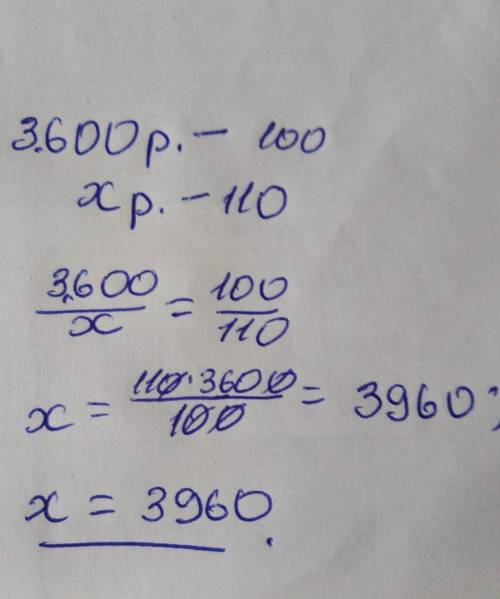 3.600 р. – 100
х р. – 110
3.600/х = 100/110
х = 110·3600/100 = 3960;
х = 3960.